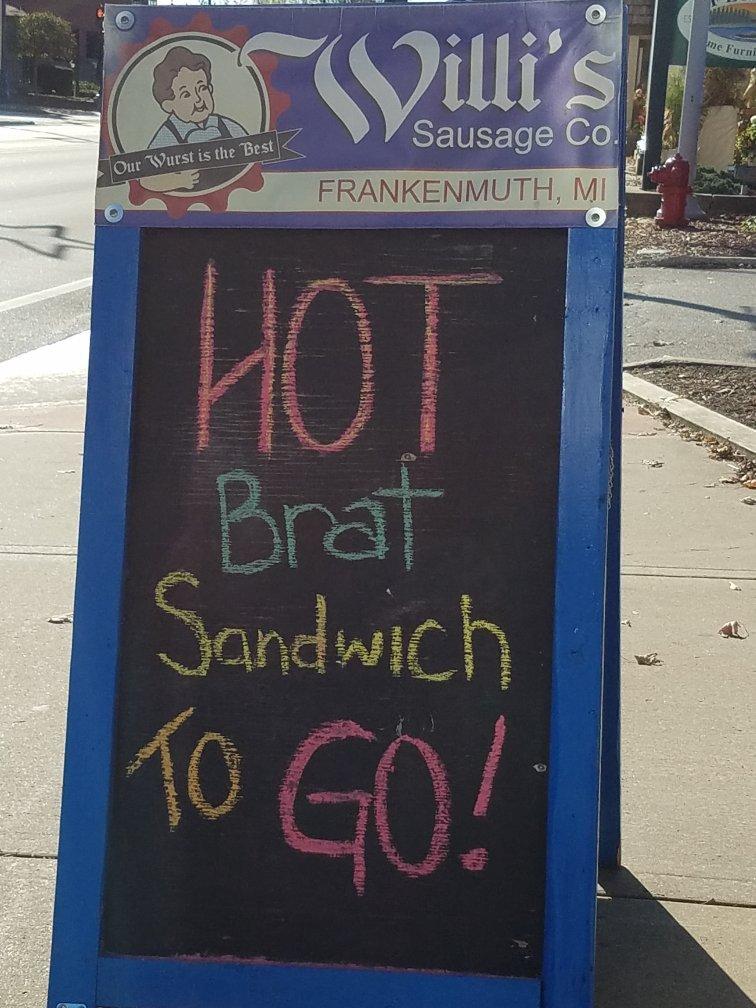 Willi's
Sausage Co.
Our Wurst is the Best
FRANKENMUTH, MI
HOT
Brat
Sandwich
To GO!